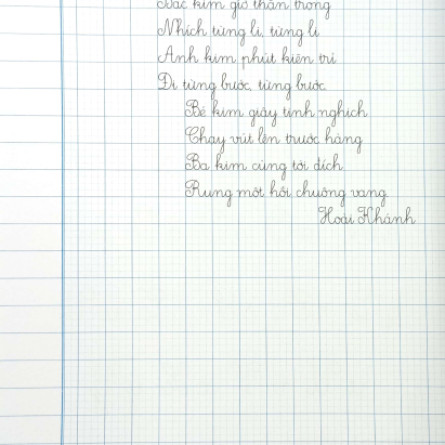 Bác kim giờ thận trọng
Nhích từng li, từng li
Anh kim phút kiên trì
Đi từng bước, từng bước.
Bé kim giây tinh nghịch
Chạy vút lên trước hàng
Ba kim cùng tới đích
Rung một hồi chuông vang.
Hoài Khánh